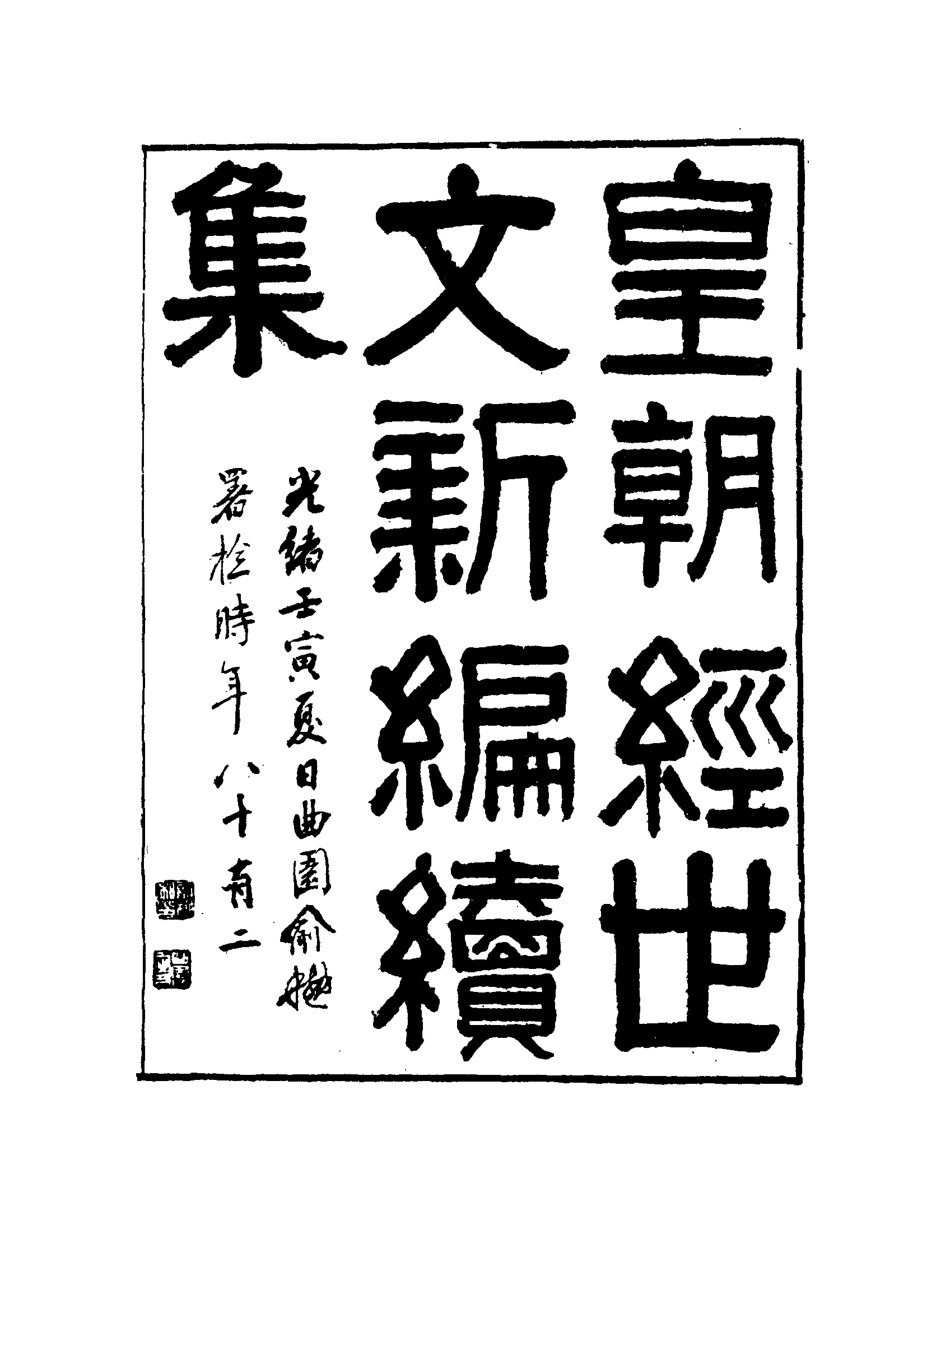 皇朝經世
文新編續
集
光緒壬寅夏日曲園俞樾
署檢時年八十有二